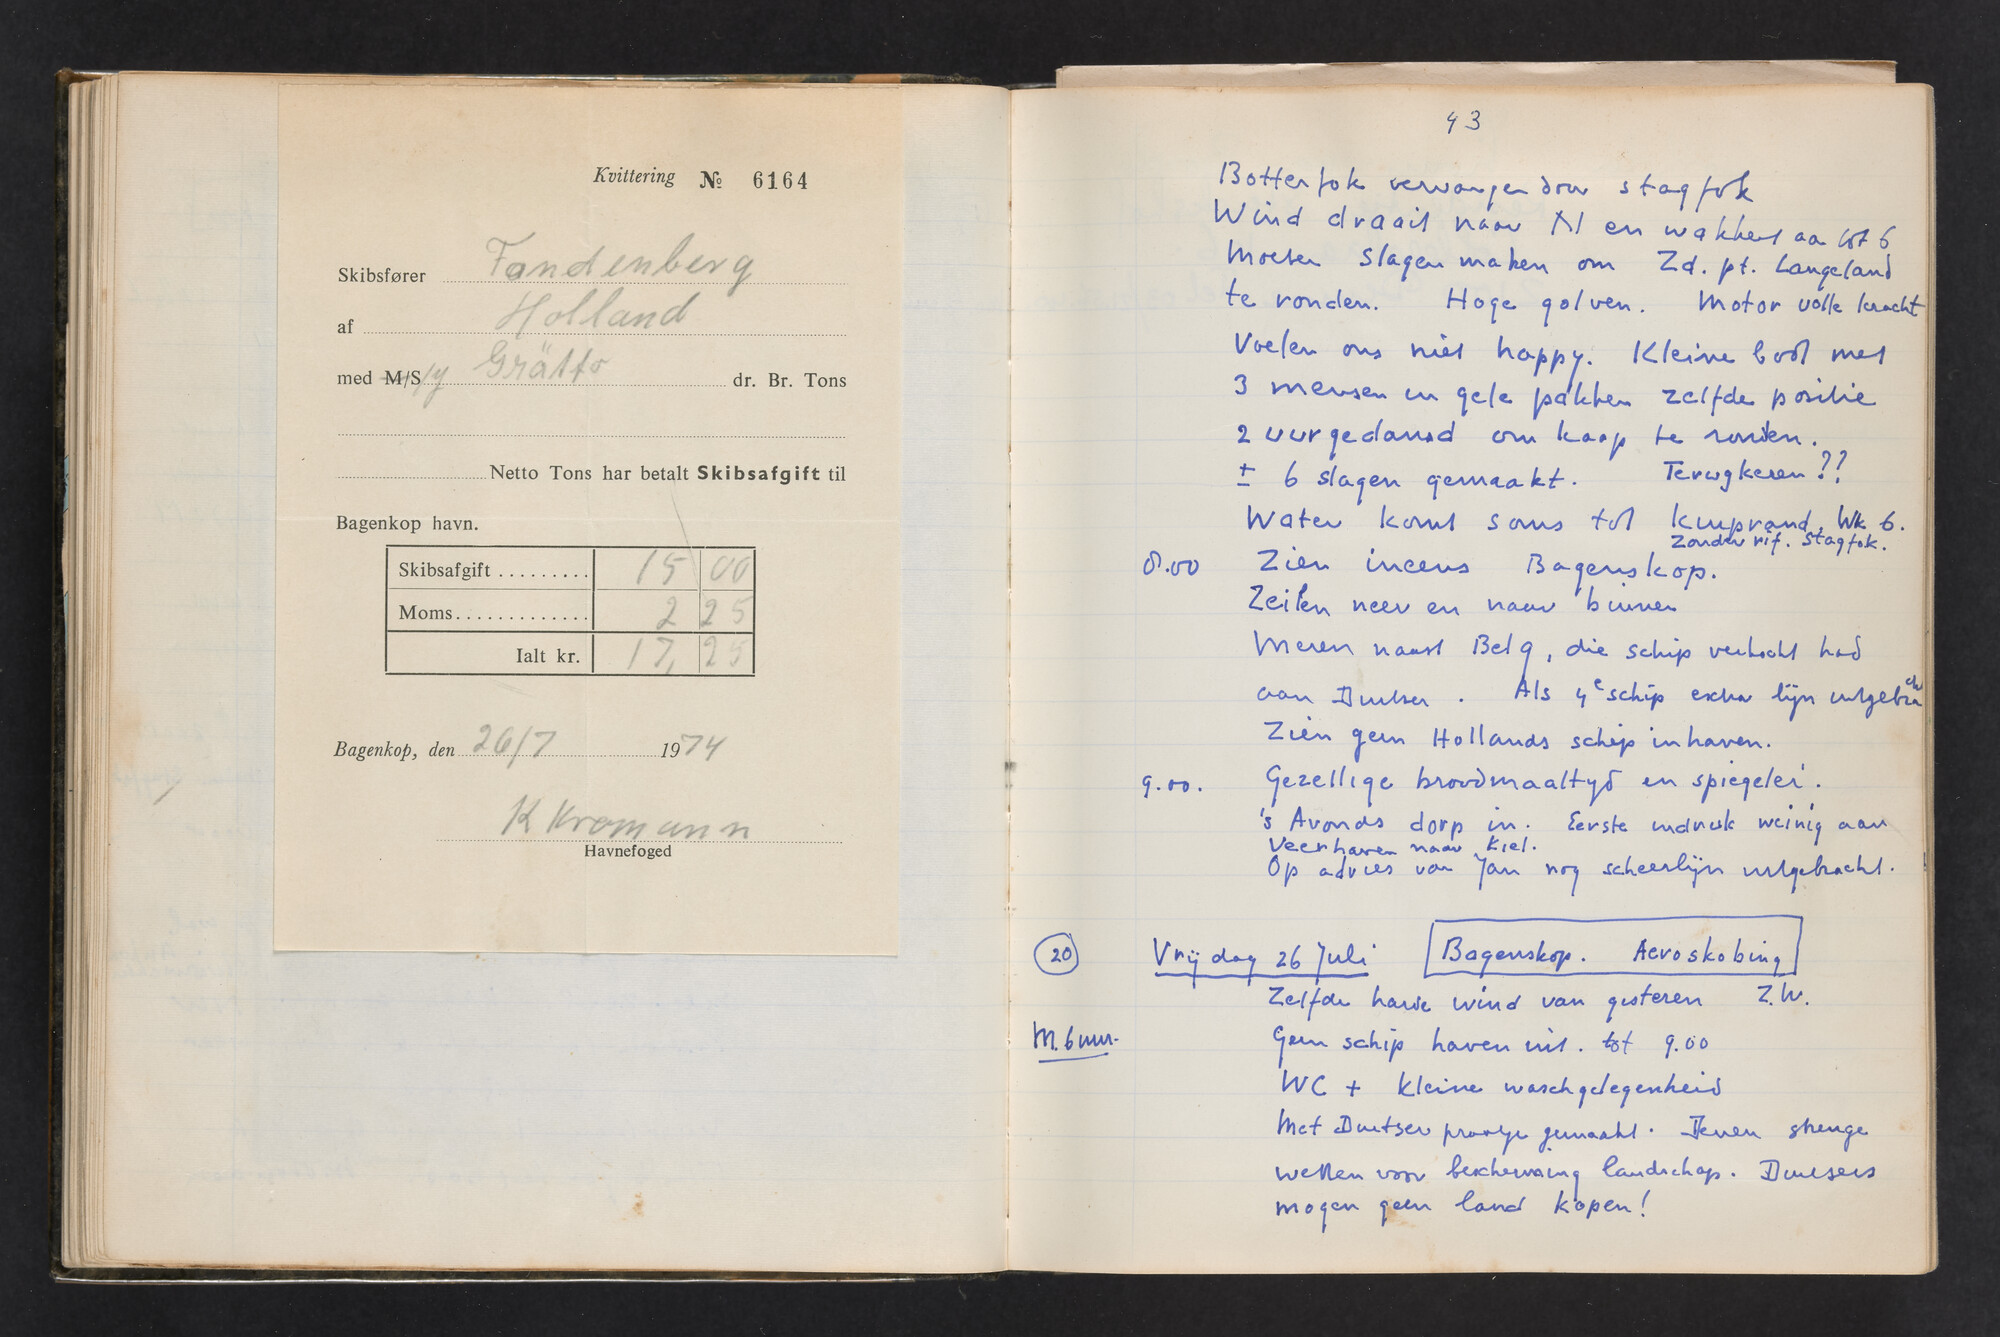 Kvittering № 6164
Skibsfører Fandenberg
af Holland
med M/S/y Grätto dr. Br. Tons
Netto Tons har betalt Skibsafgift til
Bagenkop havn.
Skibsafgift 15 00
Moms 2 25
Ialt kr. 17, 25
Bagenkop, den 26/7 1974
K Kromann
Havnefoged
43
Botterfok vervangen door stagfok
Wind draait naar N en wakkert aan tot 6
Moeten slagen maken om Zd. pt. Langeland
te ronden. Hoge golven. Motor volle kracht
Voelen ons niet happy. Kleine boot met
3 mensen in gele pakken zelfde positie
2 uur gedansd om kaap te ronden.
± 6 slagen gemaakt. Terugkeren??
Water komt soms tot kuiprand, Wk 6.
zonder rif. stagfok.
8.00 Zien ineens Bagenskop.
Zeilen neer en naar binnen
Meren naast Belg, die schip verkocht had
aan Duitser. Als 4e schip extra lijn uitgebracht
Zien geen Hollands schip in haven.
9.00. Gezellige broodmaaltyd en spiegelei.
's Avonds dorp in. Eerste indruk weinig aan
Veerhaven naar Kiel.
Op advies van Jan nog scheerlijn uitgebracht.
20 Vrijdag 26 Juli Bagenskop. Aeroskobing
Zelfde harde wind van gisteren Z.W.
M. 6 uur. Geen schip haven uit. tot 9.00
WC + kleine waschgelegenheid
Met Duitser praatje gemaakt. Denen strenge
wetten voor bescherming landschap. Duitsers
mogen geen land kopen!